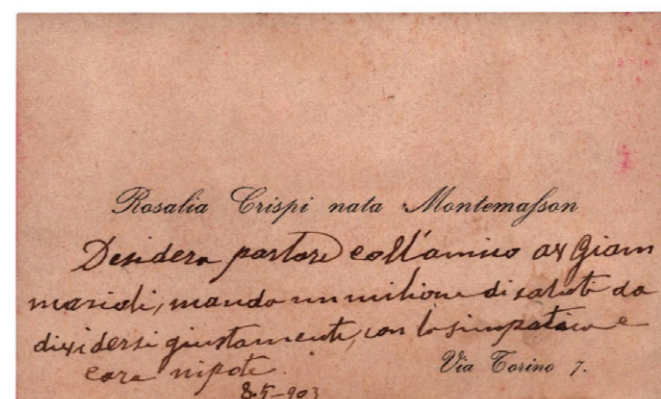 Rosalia Crispi nata Montemasson
Desidera parlare coll'amico av Giam
marioli, mando un milione di saluti da
dividersi giustamente, con la simpatica e
cara nipote.
Via Torino 7.
8-5-903